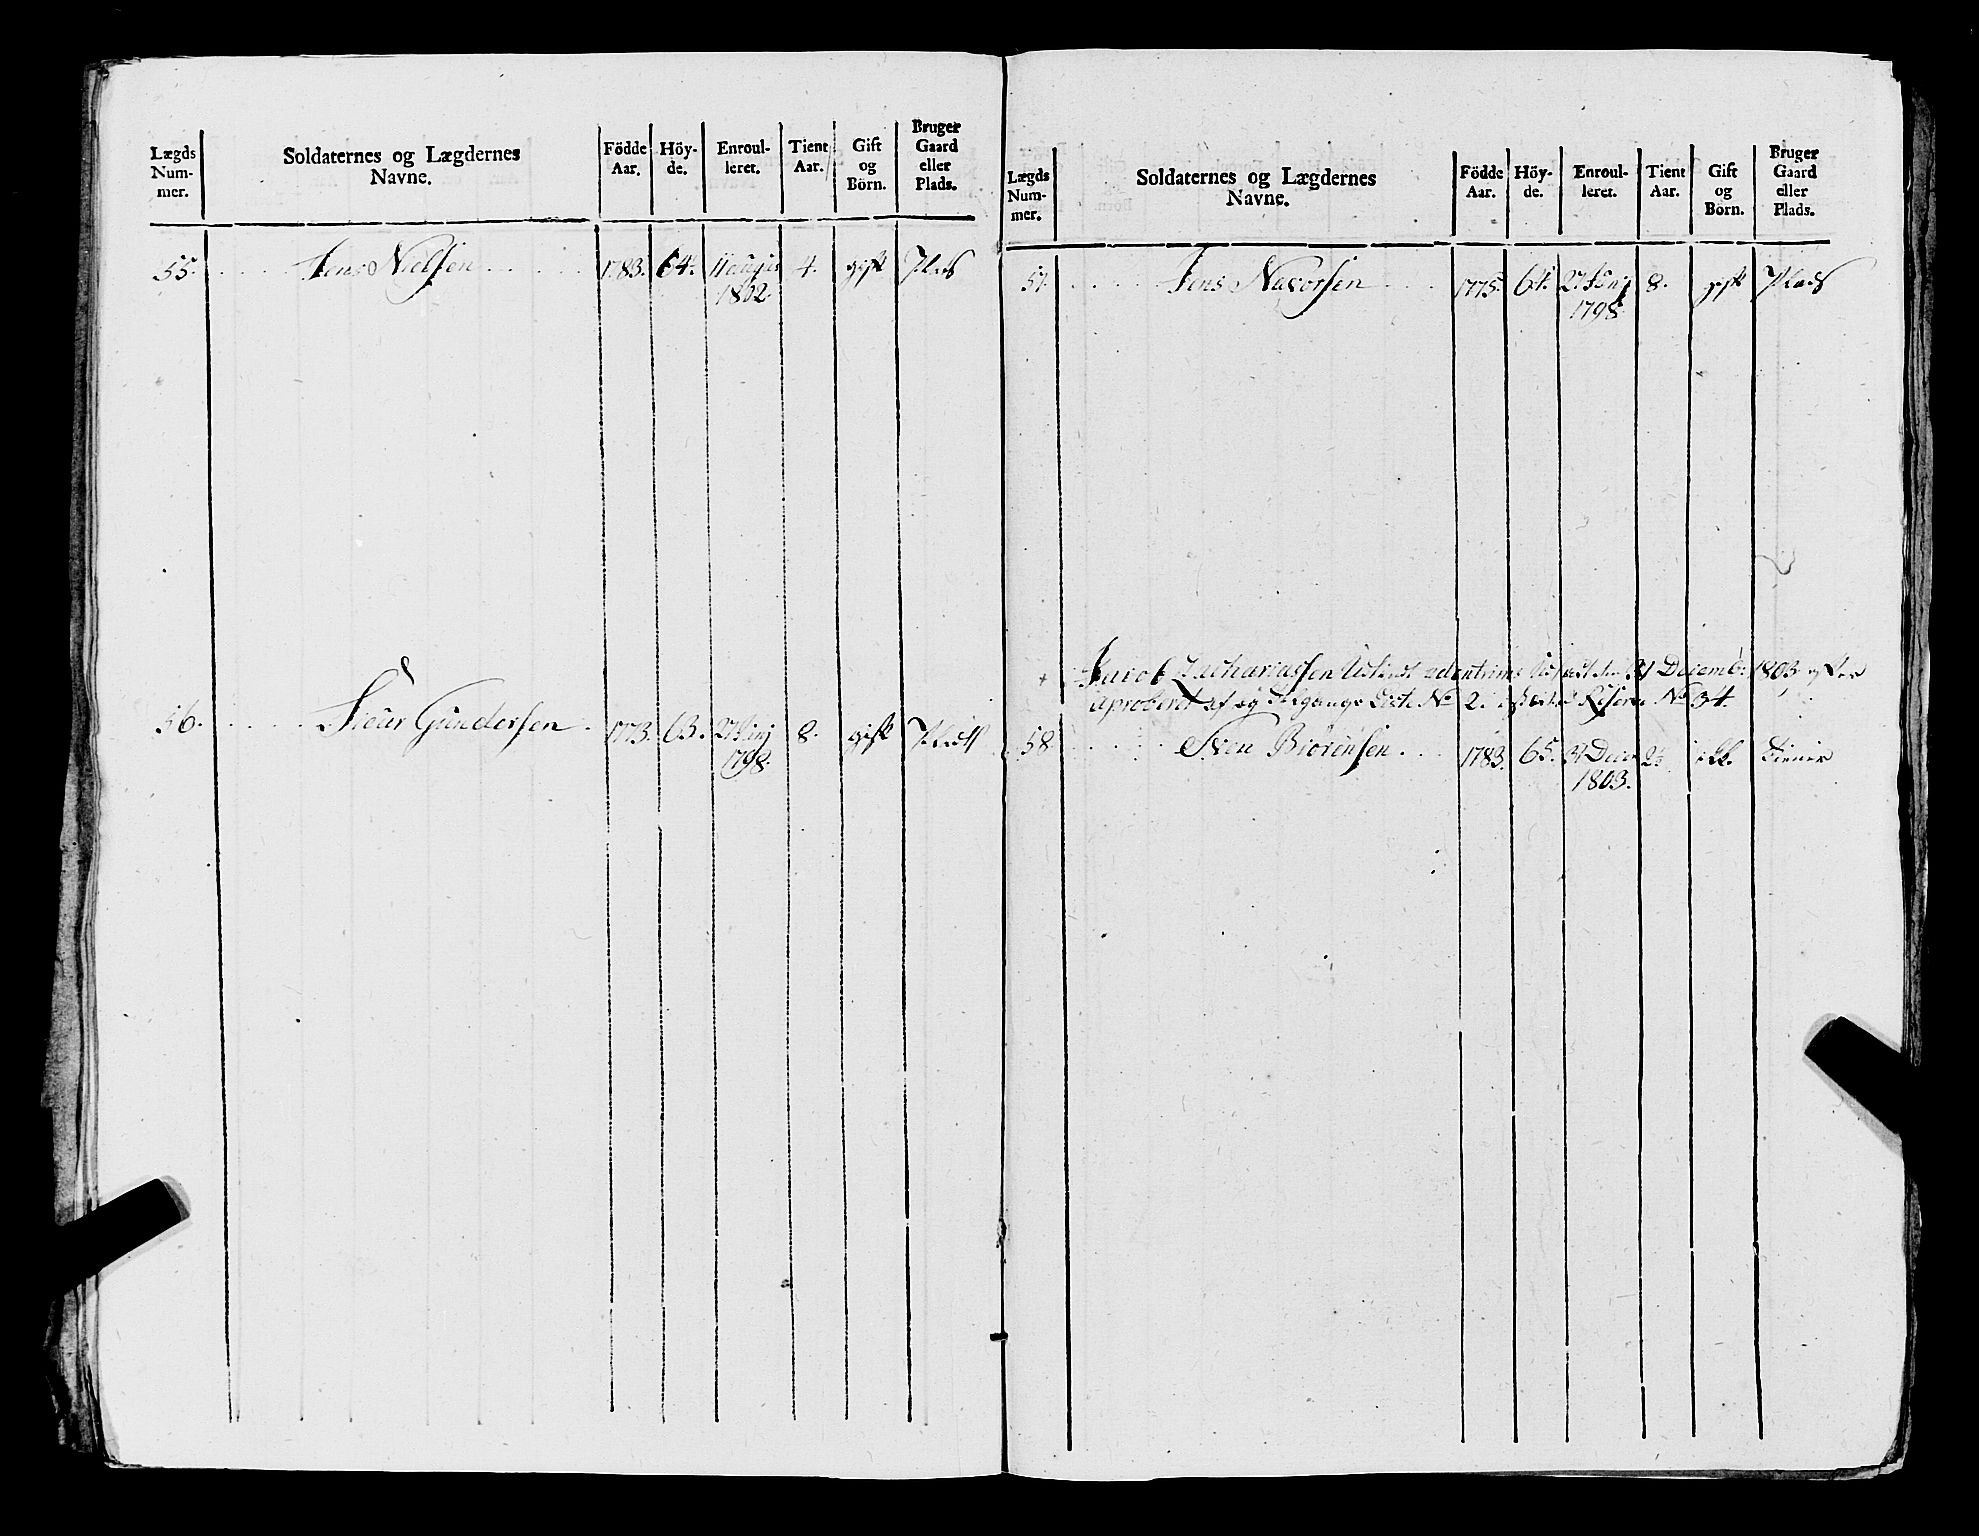 Lægds Num- mer. Soldaternes og Lægdernes Navne. Födde Aar. Höy- de. Enroul- leret. Tient Aar. Gift og Börn. Bruger Gaard eller Plads.
55. Jens Nielsen 1783. 64. 11 1802. 4. gift Plads
56. Siver Gundersen 1773. 63. 27 Junj 1798. 8. gift Plads
Lægds Num- mer. Soldaternes og Lægdernes Navne. Födde Aar. Höy- de. Enroul- leret. Tient Aar. Gift og Börn. Bruger Gaard eller Plads.
57. Jens 1775. 61. 27 Junj 1798. 8. gift Plads
Jacob Zachariassen 31 Decemb: 1803 efter
aproberet af og Afgangs Liste No 2. Reserve No 34.
58 Sven Biörensen 1783. 65. 31 Decbr 1803. 2½ ikk. tiener